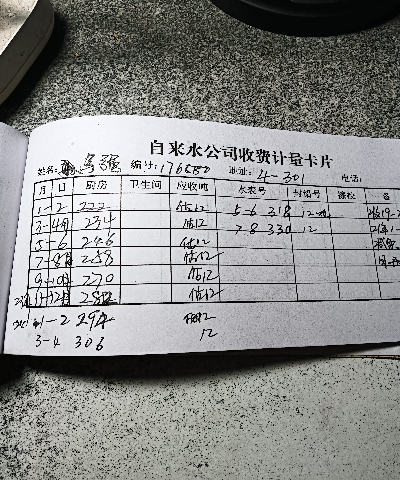 自来水公司收费计量卡片
姓名: 编号: 176580 地址: 4-301 电话:
月 日 厨房 卫生间 应收吨 水表号 封铅号 备
1-2 222 估12 5-6 318 12
3-4 234 估12 7-8 330 12
5-6 246 估12
7-8 258 估12
9-10 270 估12
11-12 282 估12
1-2 294 估12
3-4 306 12